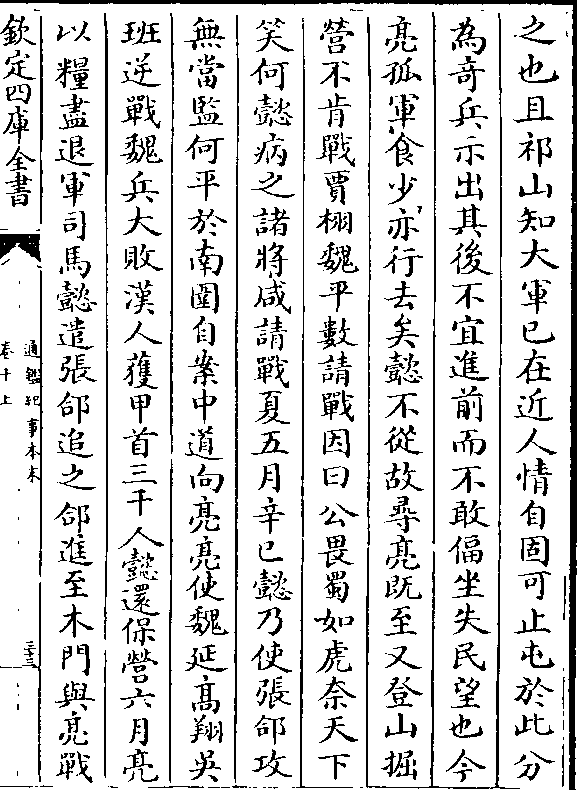 之也且祁山知大軍已在近人情自固可止屯於此分
為竒兵示出其後不宜進前而不敢偪坐失民望也今
亮孤軍食少亦行去矣懿不從故尋亮既至又登山掘
營不肯戰賈栩魏平數請戰因曰公畏蜀如虎奈天下
笑何懿病之諸將咸請戰夏五月辛巳懿乃使張郃攻
無當監何平於南圍自案中道向亮亮使魏延高翔吳
班逆戰魏兵大敗漢人獲甲首三千人懿還保營六月亮
以糧盡退軍司馬懿遣張郃追之郃進至木門與亮戰
欽定四庫全書
通鑑紀事本末
卷十上
二十三